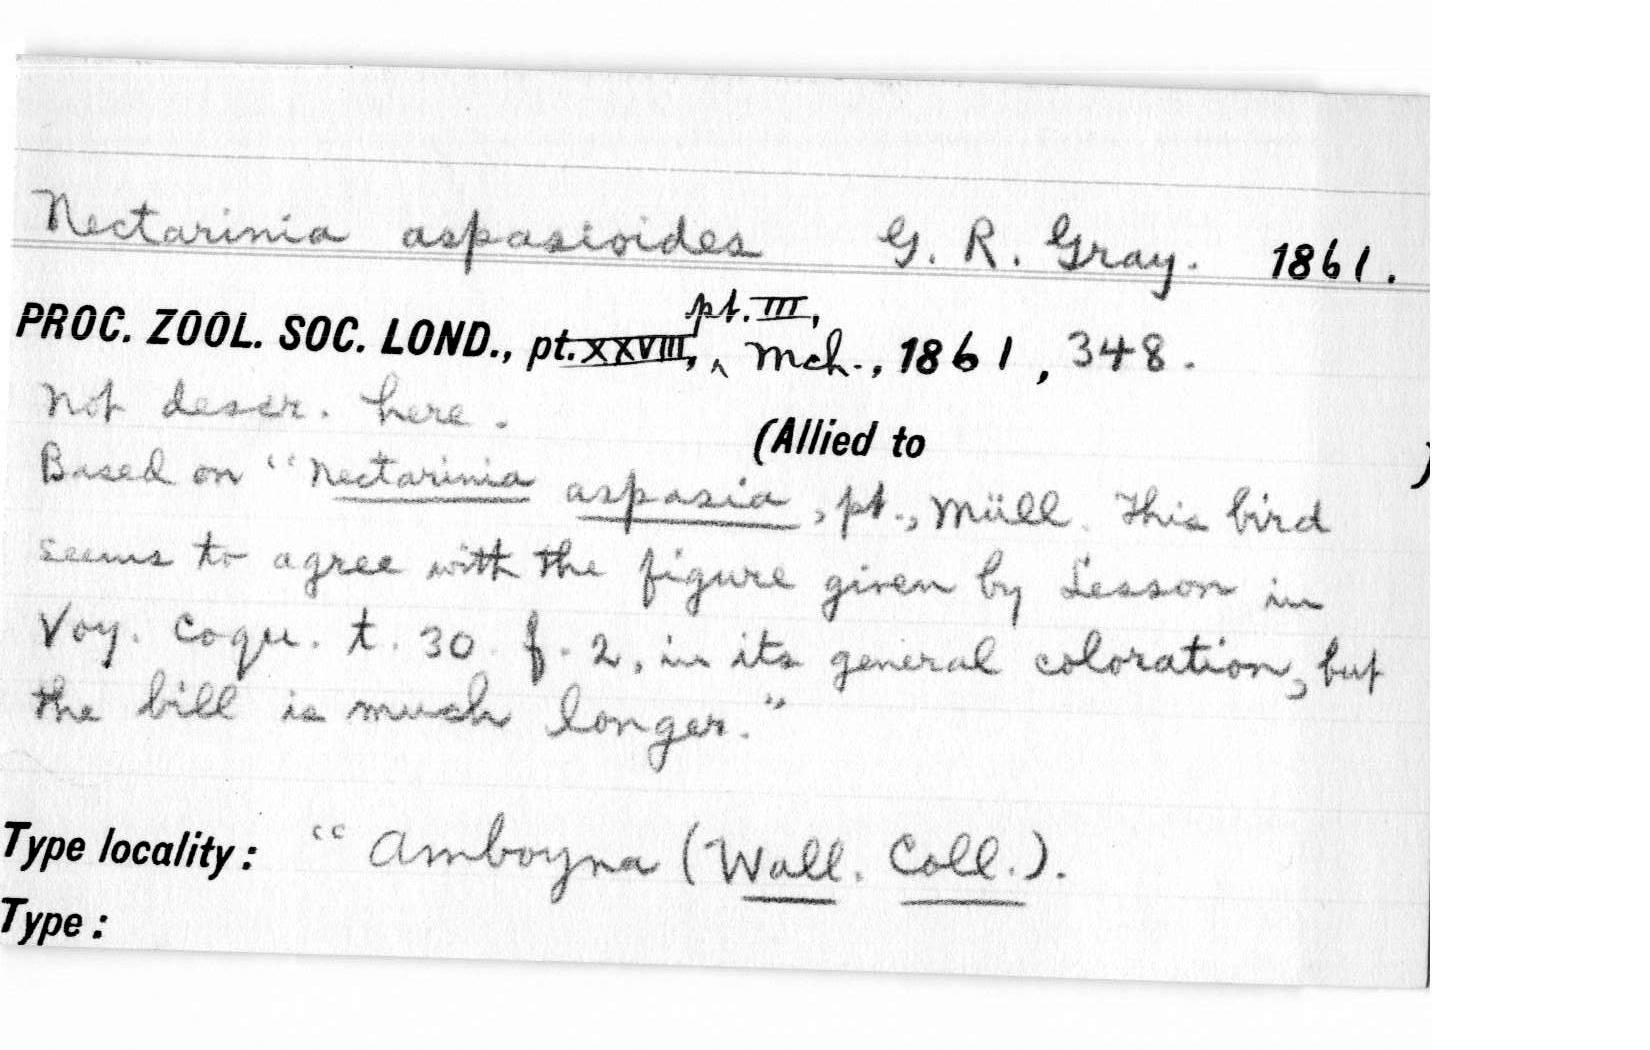 Nectarinia aspasioides G. R. Gray. 1861.
pt. III,
PROC. ZOOL. SOC. LOND., pt. XXVIII, ‸ Mch., 1861, 348.
Not descr. here.
(Allied to )
Based on "Nectarinia aspasia, pt., Müll. This bird
seems to agree with the figure given by Lesson in
Voy. Coqu. t. 30. f. 2, in its general coloration, but
the bill is much longer."
Type locality: "Amboyna (Wall. Coll.).
Type: